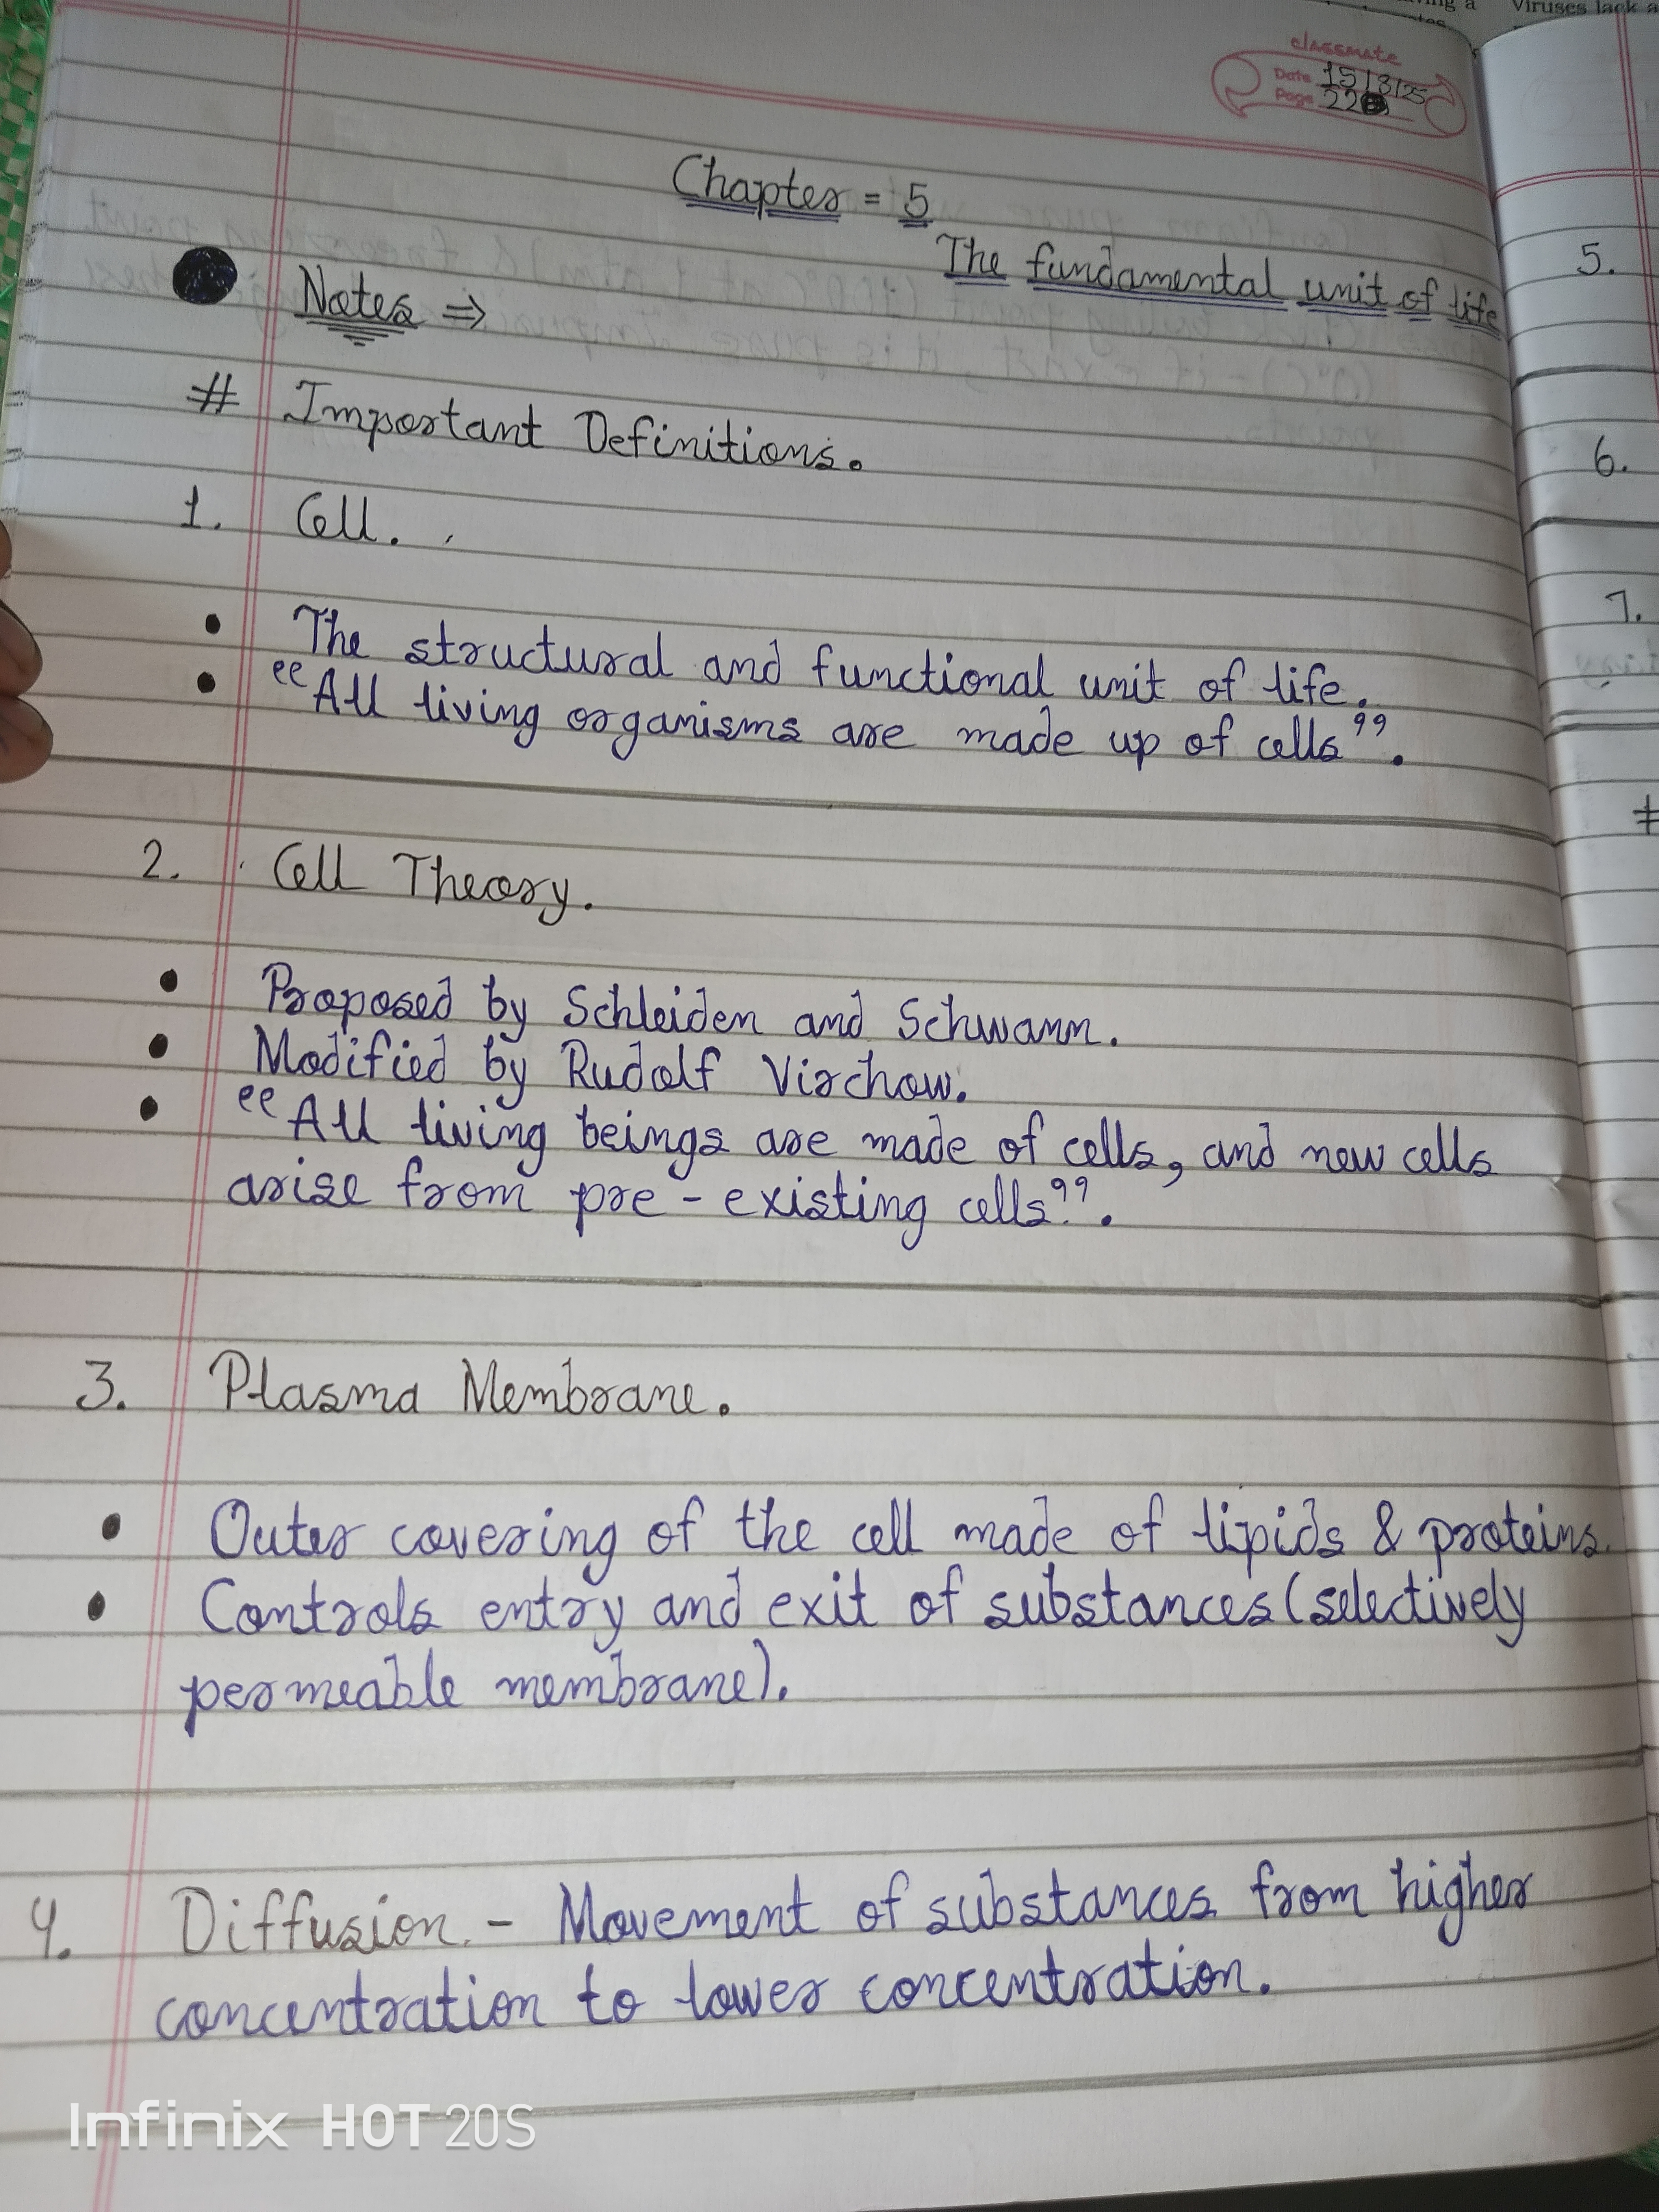 classmate
Date 15/3/25
Page 22
Chapter = 5
The fundamental unit of life
Notes ⇒
# Important Definitions.
1. Cell.
• The structural and functional unit of life.
• “All living organisms are made up of cells”.
2. Cell Theory.
• Proposed by Schleiden and Schwann.
• Modified by Rudolf Virchow.
• “All living beings are made of cells, and new cells
arise from pre-existing cells”.
3. Plasma Membrane.
• Outer covering of the cell made of lipids & proteins.
• Controls entry and exit of substances (selectively
permeable membrane).
4. Diffusion. - Movement of substances from higher
concentration to lower concentration.
Viruses lack a
5.
6.
7.
Infinix HOT 20S